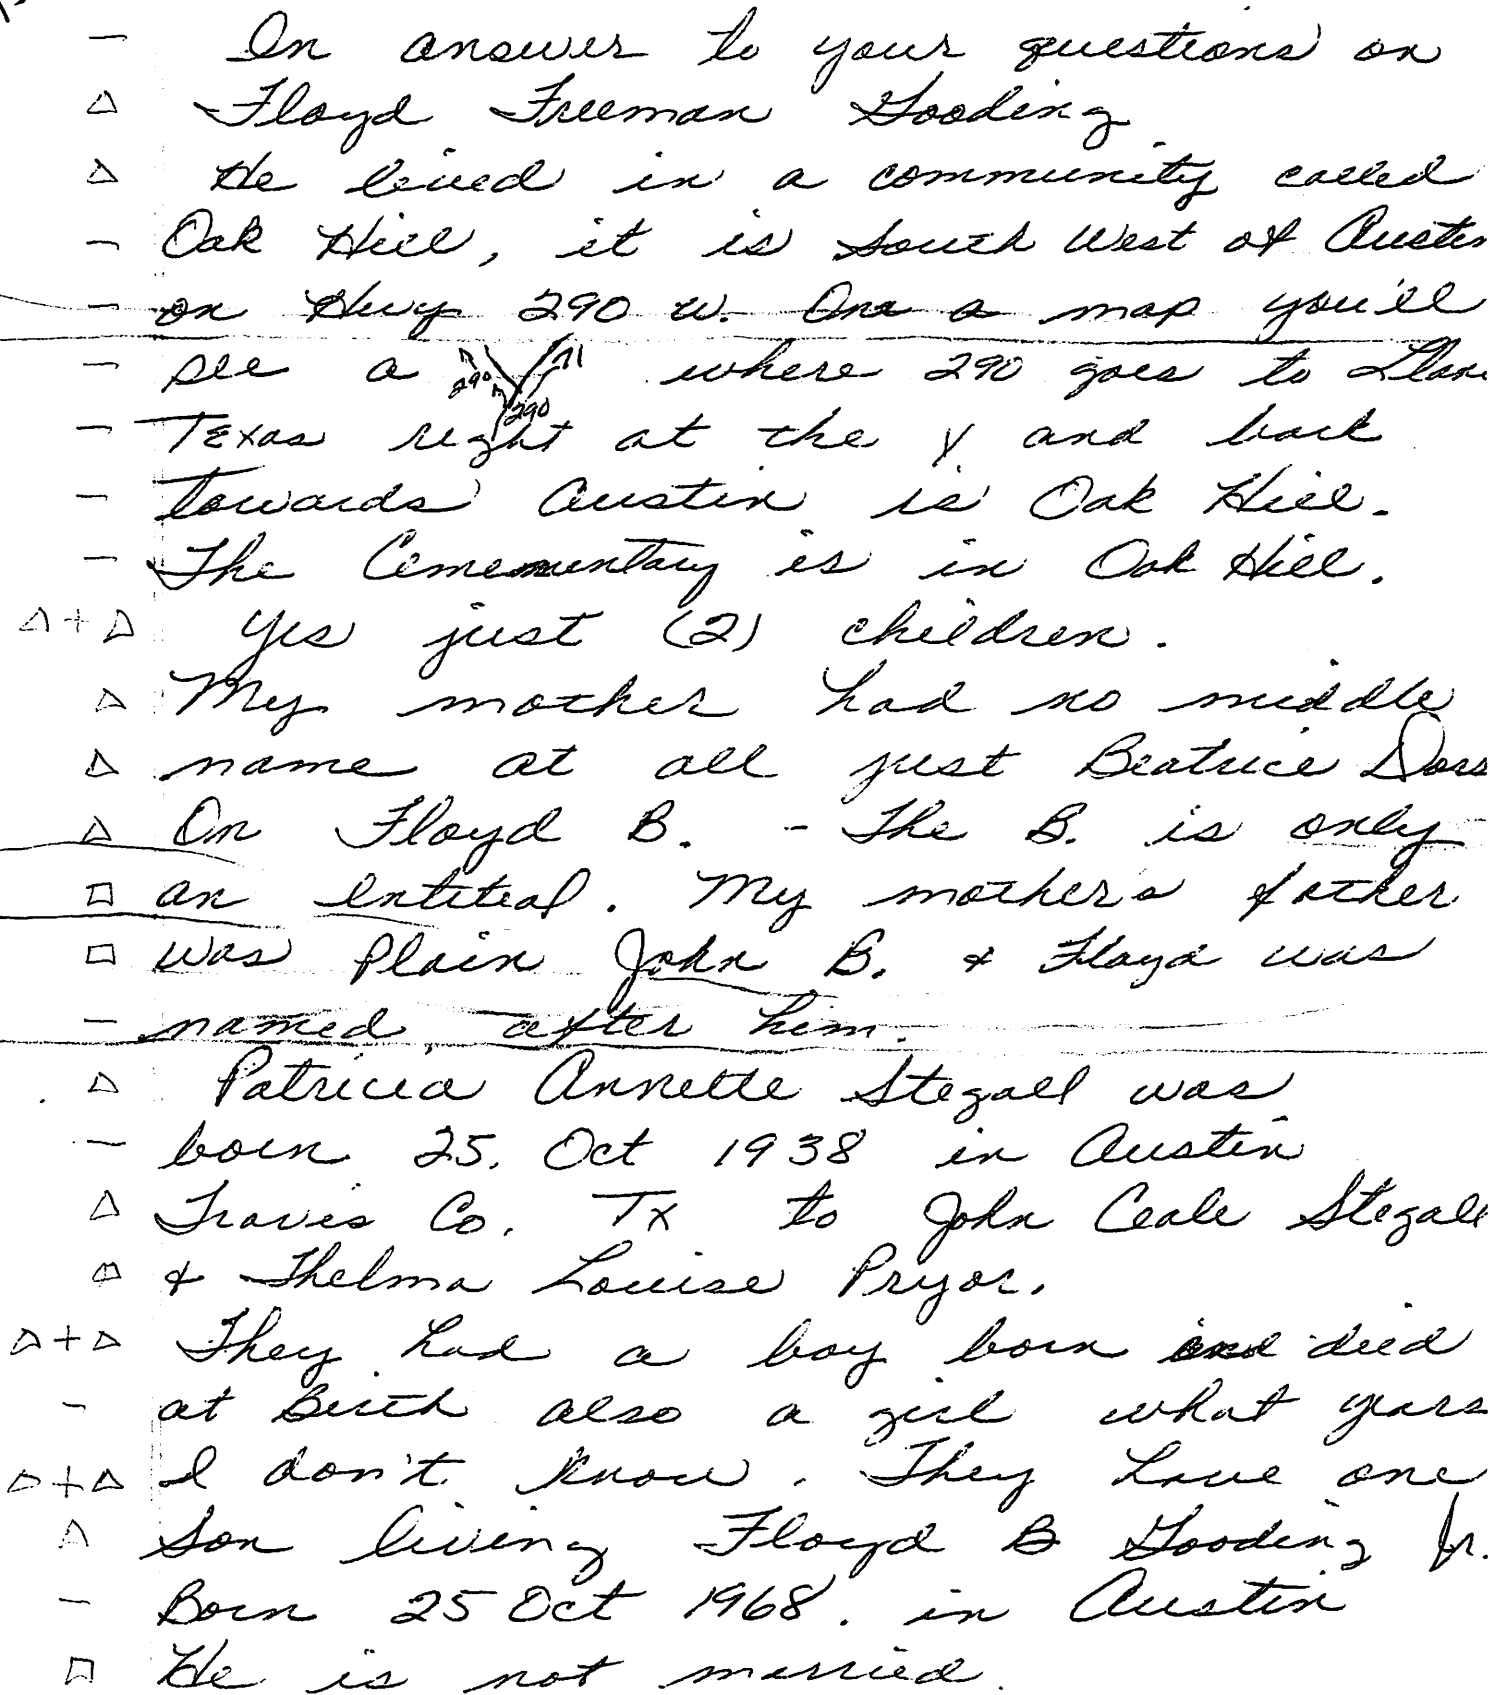 In answer to your questions on
Floyd Freeman Gooding
He lived in a community called
Oak Hill, it is South West of Austin
on Hwy 290 W. On a map you'll
see a 290 71 290 where 290 goes to Llano
Texas right at the Y and back
towards Austin is Oak Hill.
The Cemementary is in Oak Hill.
Yes just (2) children.
My mother had no middle
name at all just Beatrice Doss
On Floyd B. - The B. is only
an entiteal. My mother's father
was plain John B. & Floyd was
named after him.
Patricia Annette Stegall was
born 25. Oct 1938 in Austin
Travis Co. Tx to John Ceale Stegall
& Thelma Louise Pryor.
They had a boy born and died
at Birth also a girl what years
I don't know. They have one
Son living Floyd B Gooding Jr.
Born 25 Oct 1968. in Austin
He is not married.